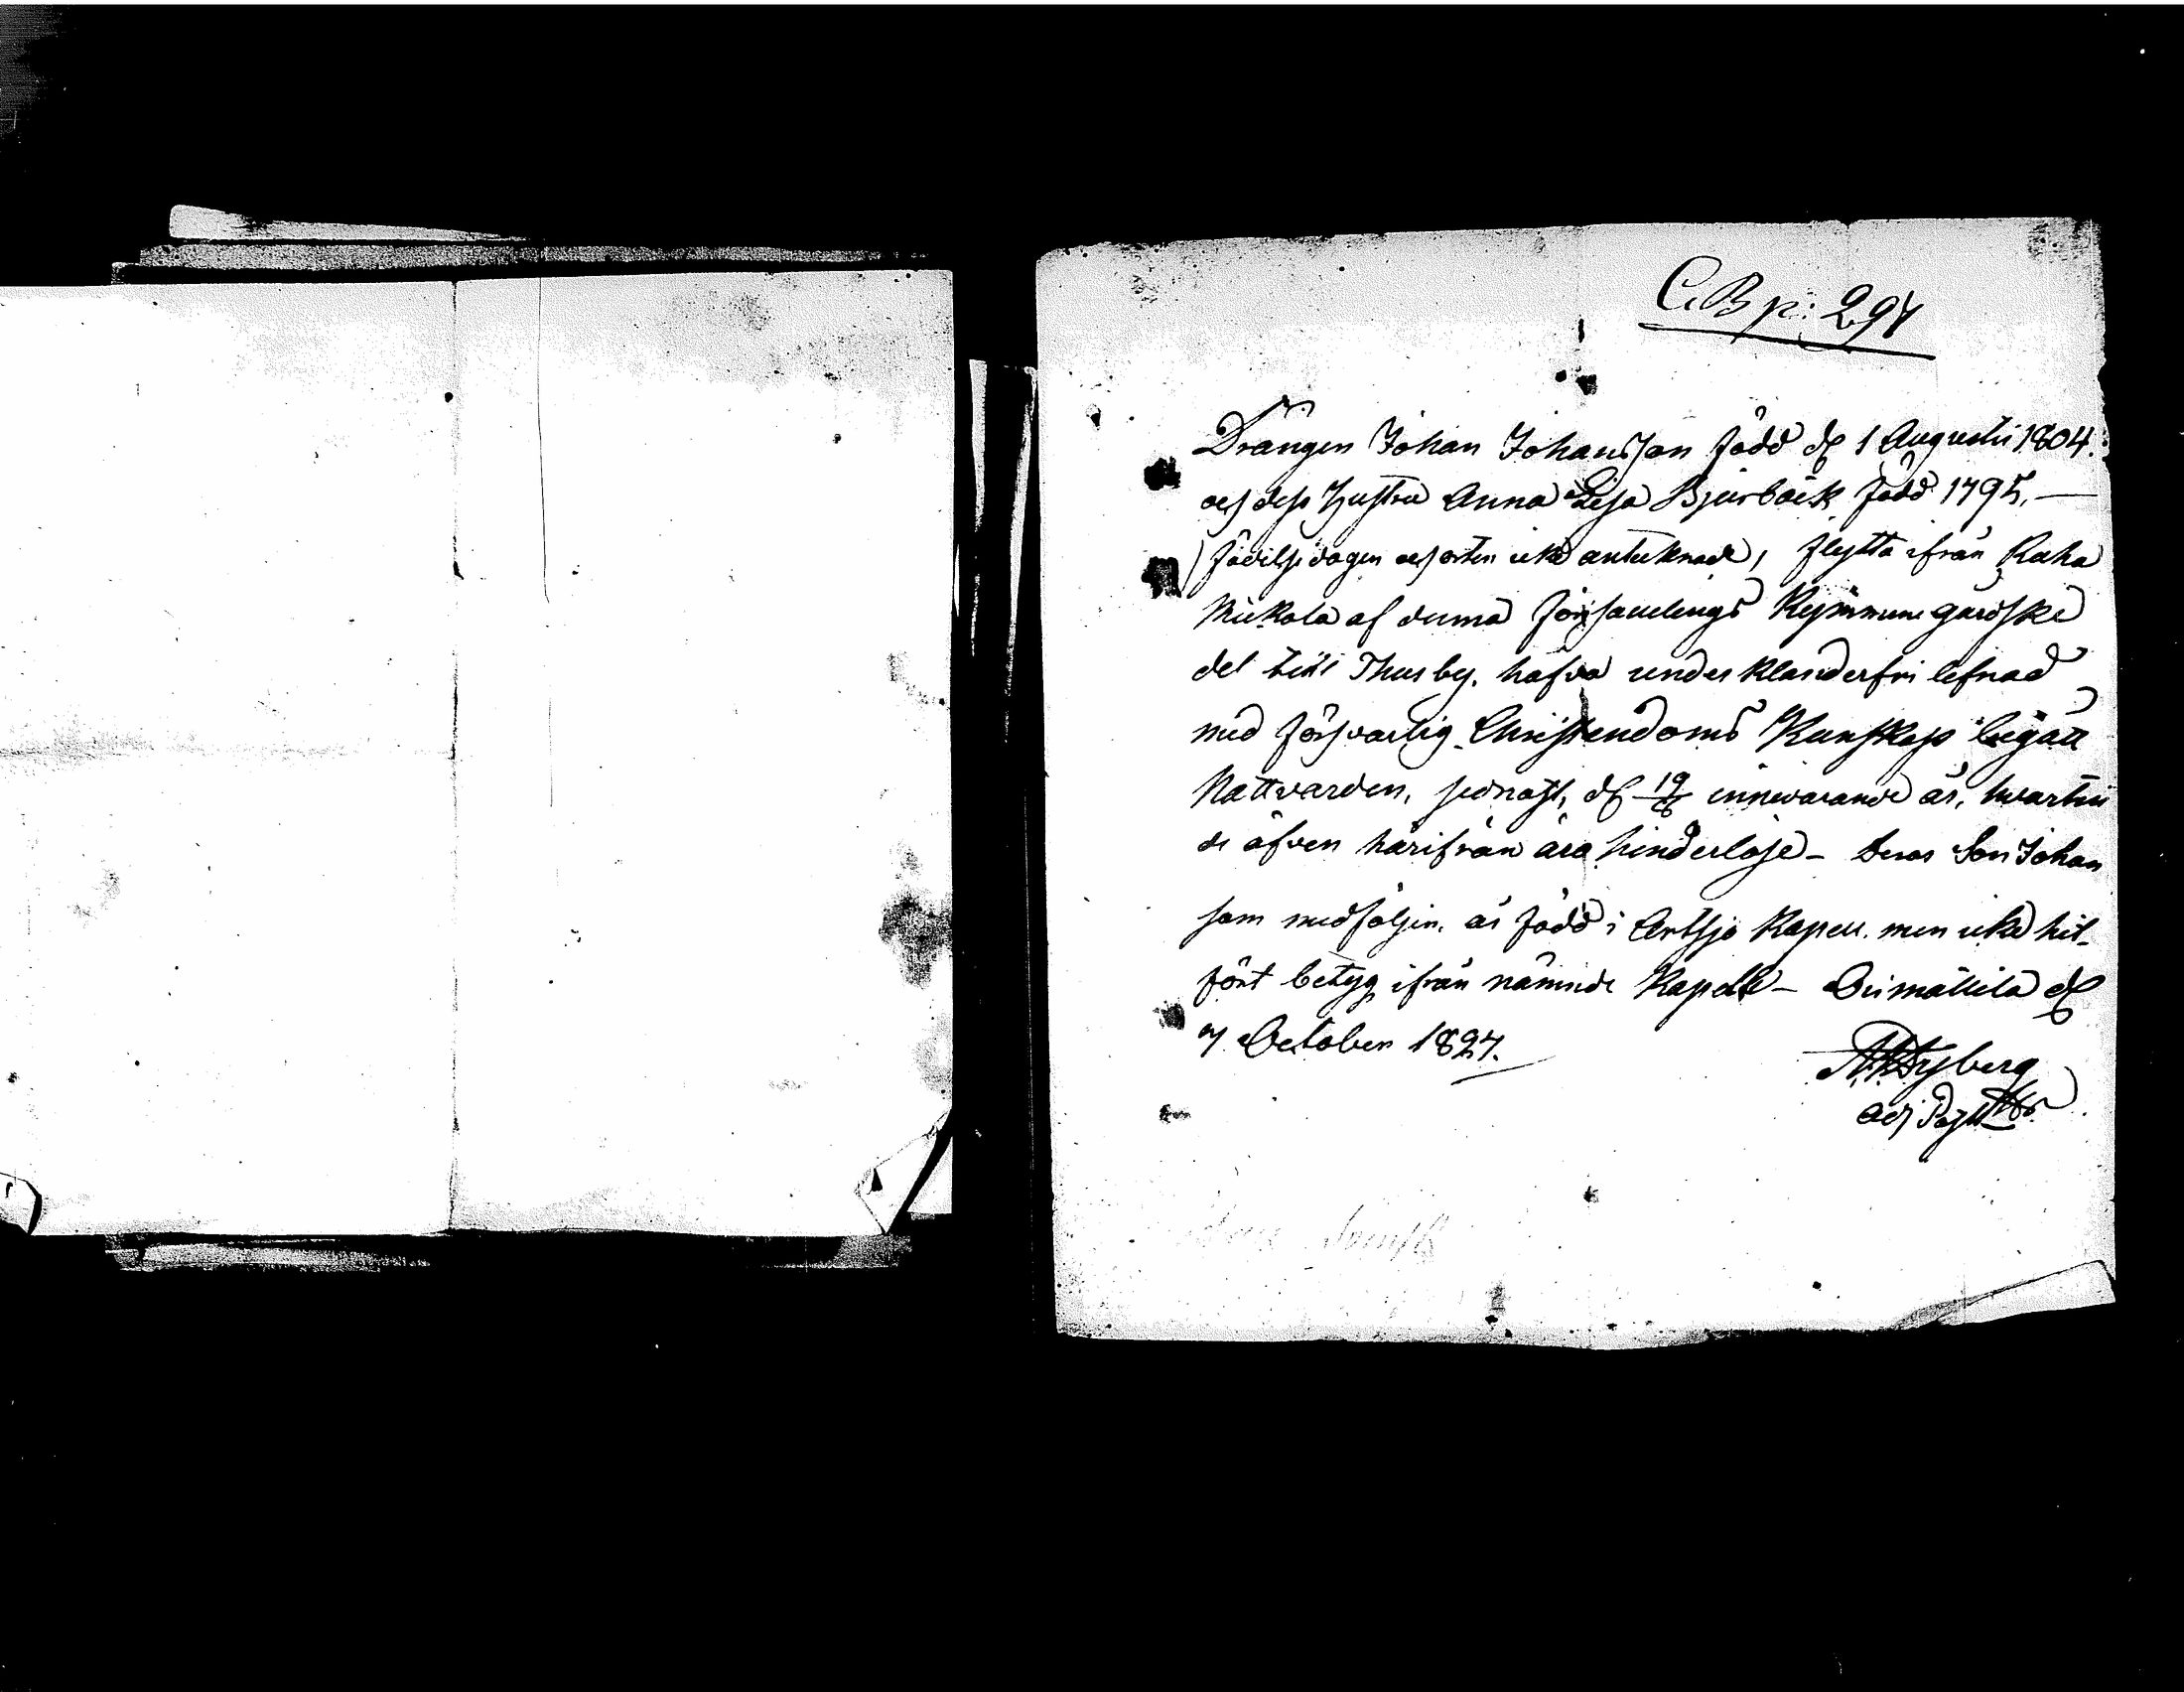 C.B p: 297
Drängen Johan Johansson född d. 1 Augusti 1804.
och dess Hustru Anna Lisa Björbäck född 1795, —
födelsedagen och orten icke antecknade, flytta ifrån Raha
Mickola af denna församlings Kymmenegårdske
del till Thusby. hafva under klanderfri lefnad
med försvarlig Christendoms Kunskap begått
Nattvarden, sednast, d. 19/8 innevarande år, hvartill
de äfven härifrån äro hinderlöse – Deras Son Johan
som medföljer, är född i Artsjö Kapell. men icke hit-
fört betyg ifrån nämnde Kapell – Orimattila d.
7 October 1827.
Nyberg
adj